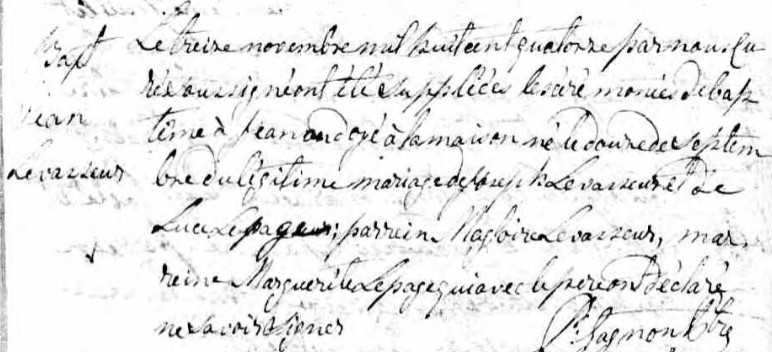 Bapt
Jean
Levasseur
Le treize novembre mil huit cent quatorze par nous Cu
ré soussigné ont été supplées les céré monies de bap
tême à Jean ondoyé à la maison né le douze de septem
bre du légitime mariage de Joseph Levasseur et de
Luce Lepage ; parrein Magloire Levasseur, mar
reine Marguerite Lepage qui avec le pere ont déclaré
ne savoir signer
P. Gagnon Ptre